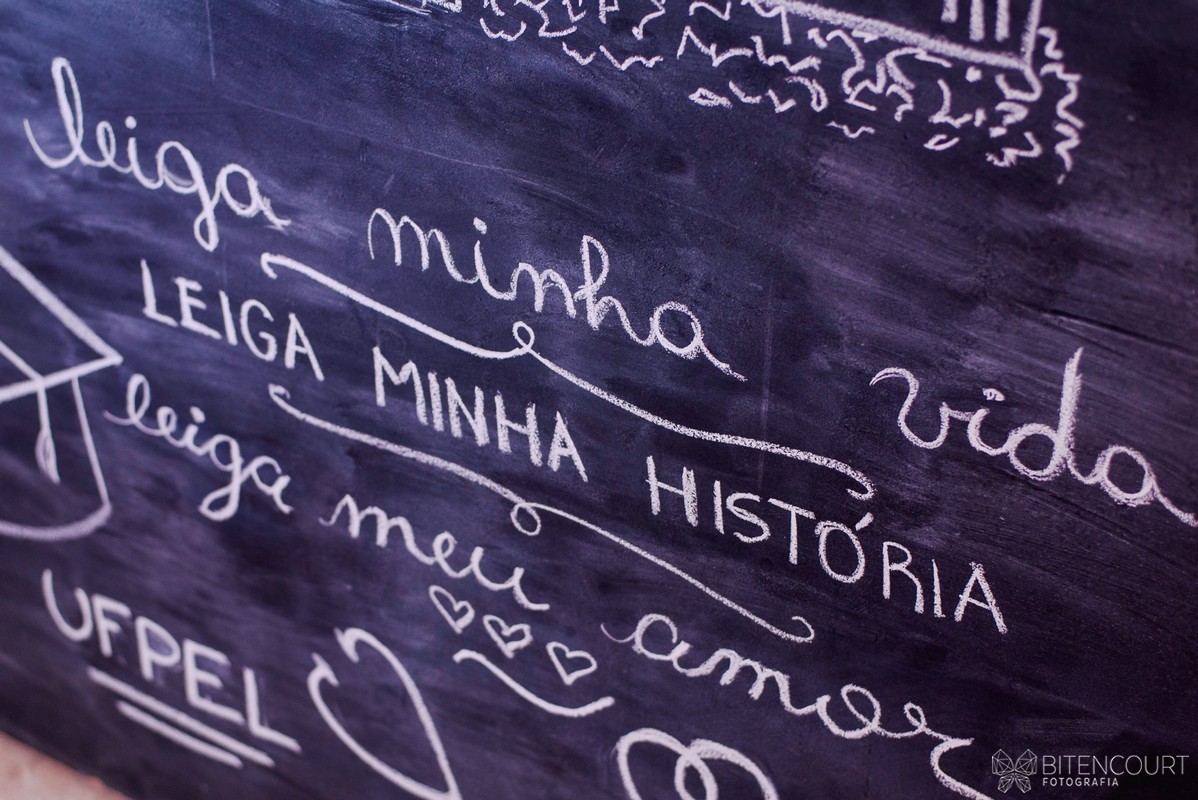 leiga minha vida
LEIGA MINHA HISTÓRIA
leiga meu amor
UFPEL
BITENCOURT
FOTOGRAFIA